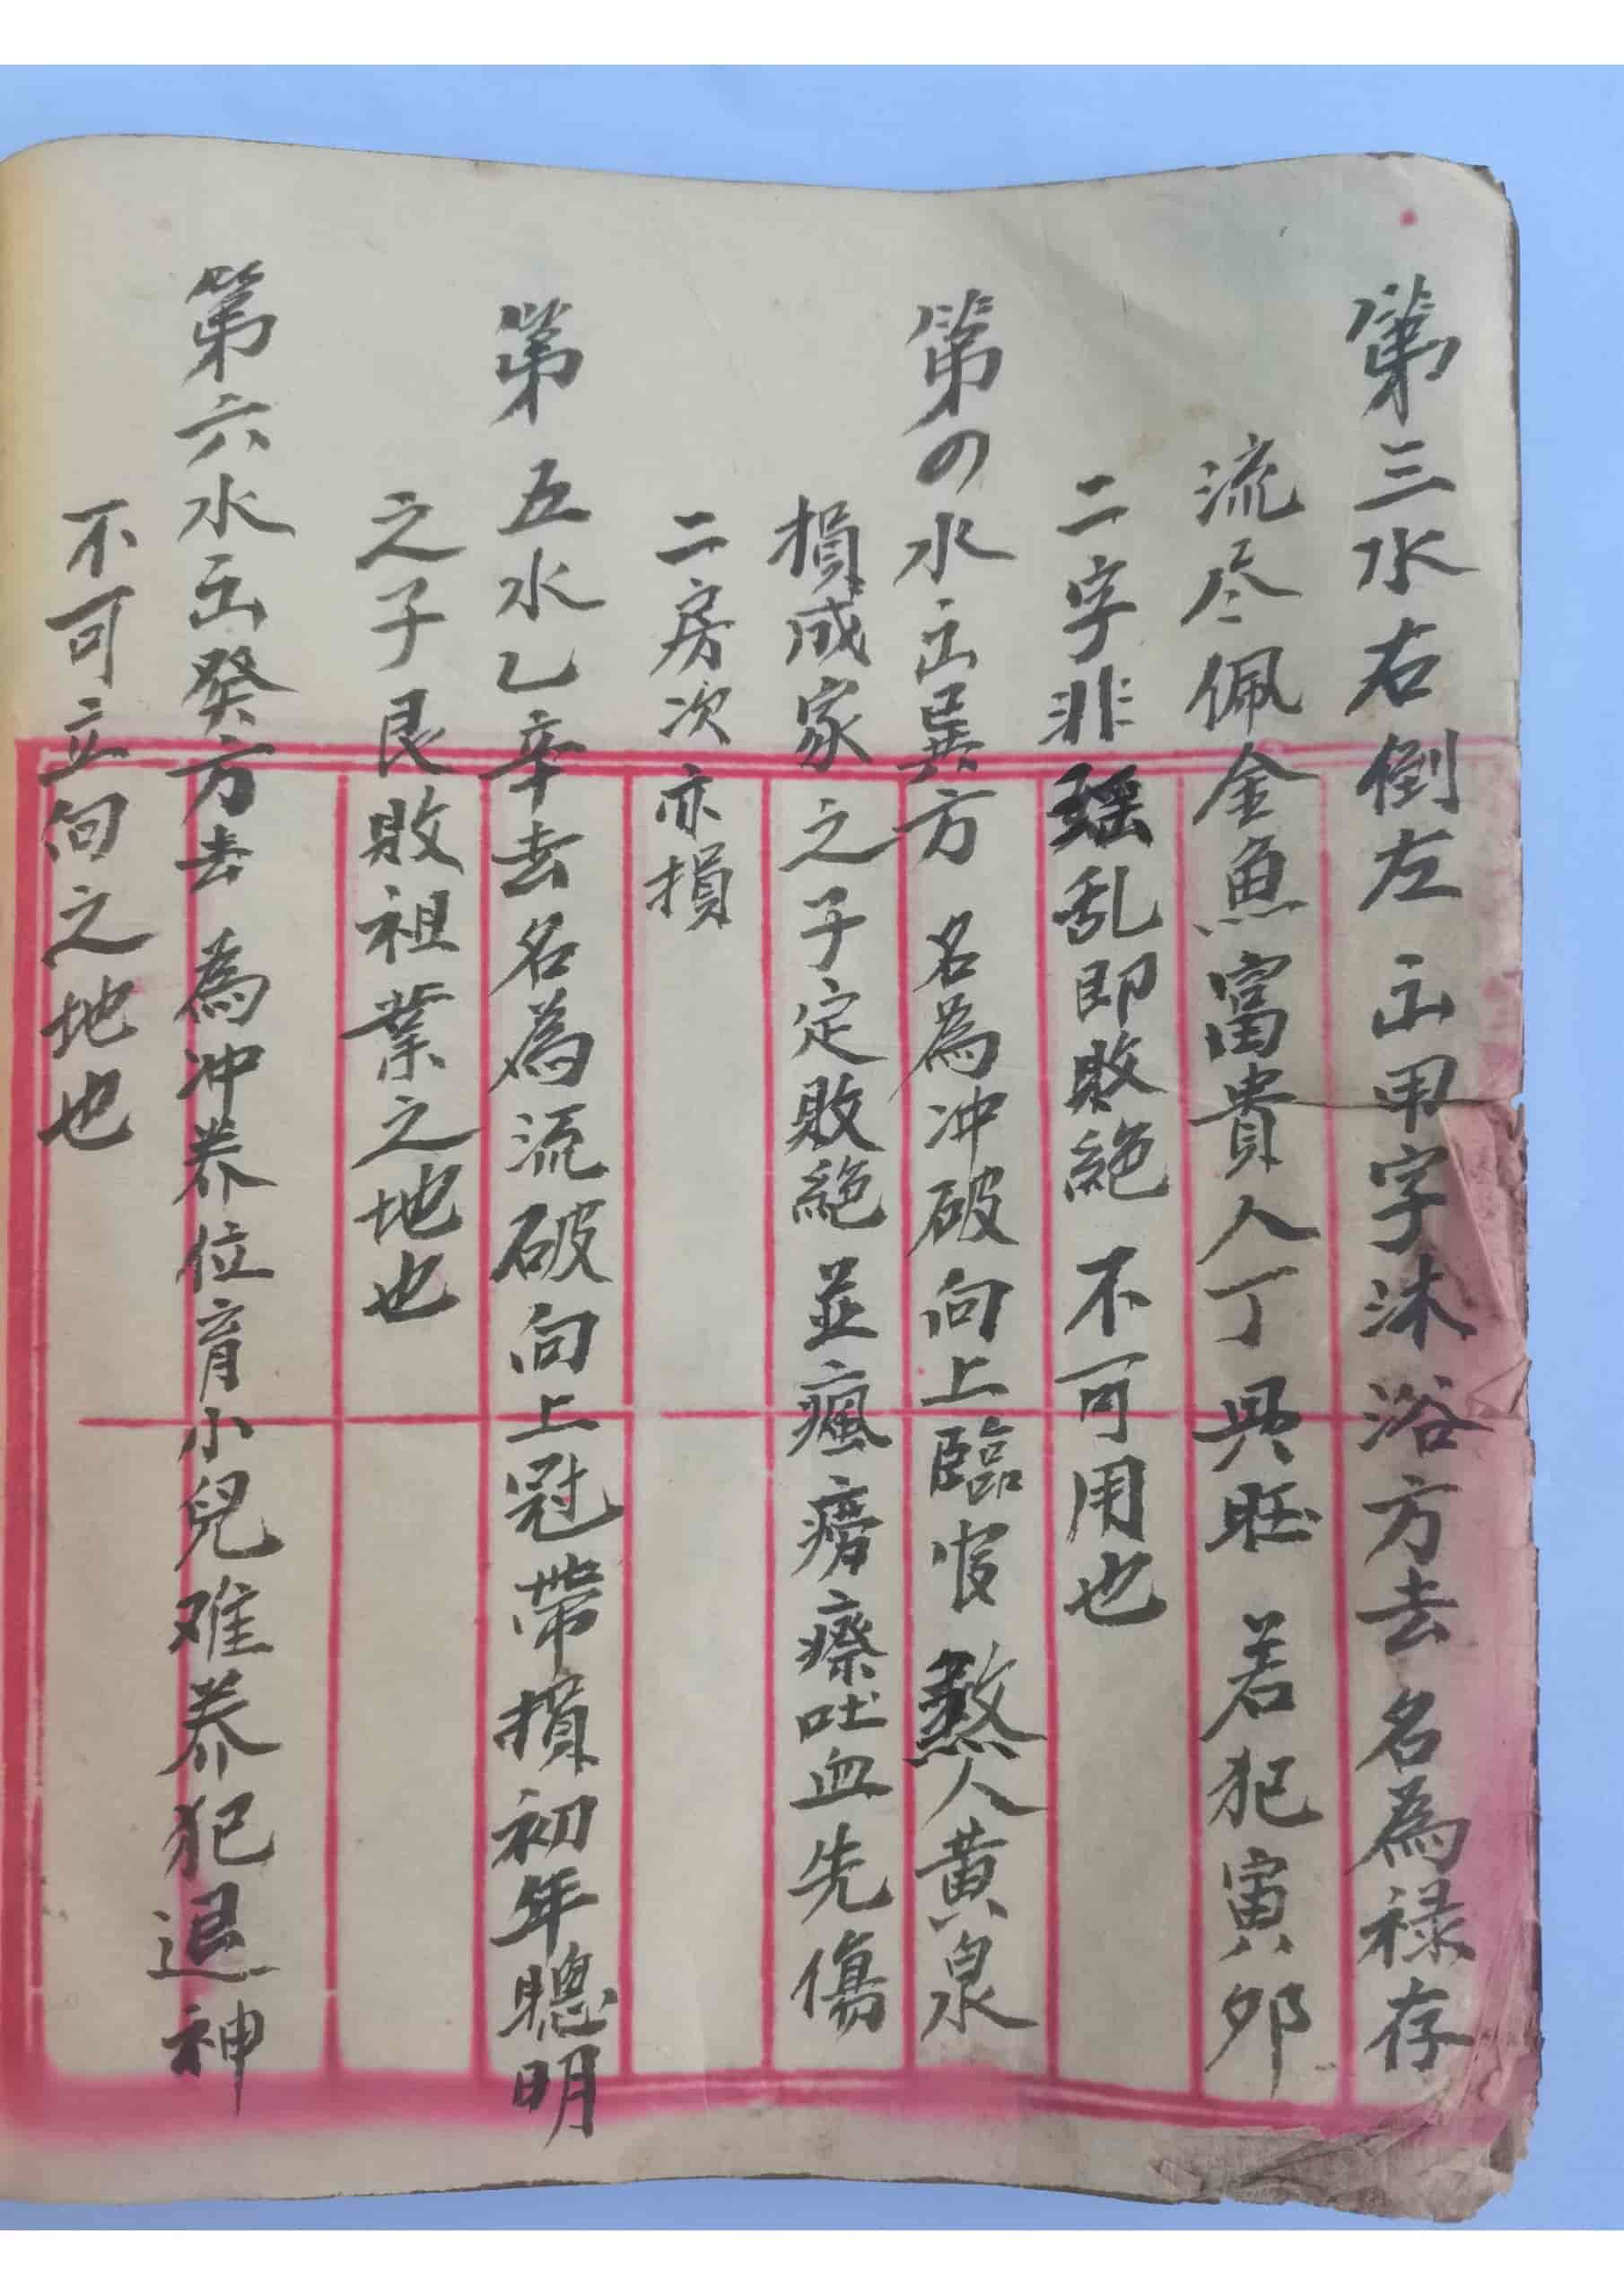 第三水右倒左 出甲字沐浴方去 名為禄存
流尽佩金魚富貴人丁興旺 若犯寅夘
二字非瑶乱即敗絶 不可用也
第四水出巽方 名為冲破向上臨官 煞人黄泉
損成家之子定敗絶 並瘋癆瘵吐血先傷
二房次亦損
第五水乙辛去 名為流破向上冠帶損初年聰明
之子退敗祖業之地也
第六水出癸方去 為冲养位育小兒难养犯退神
不可立向之地也